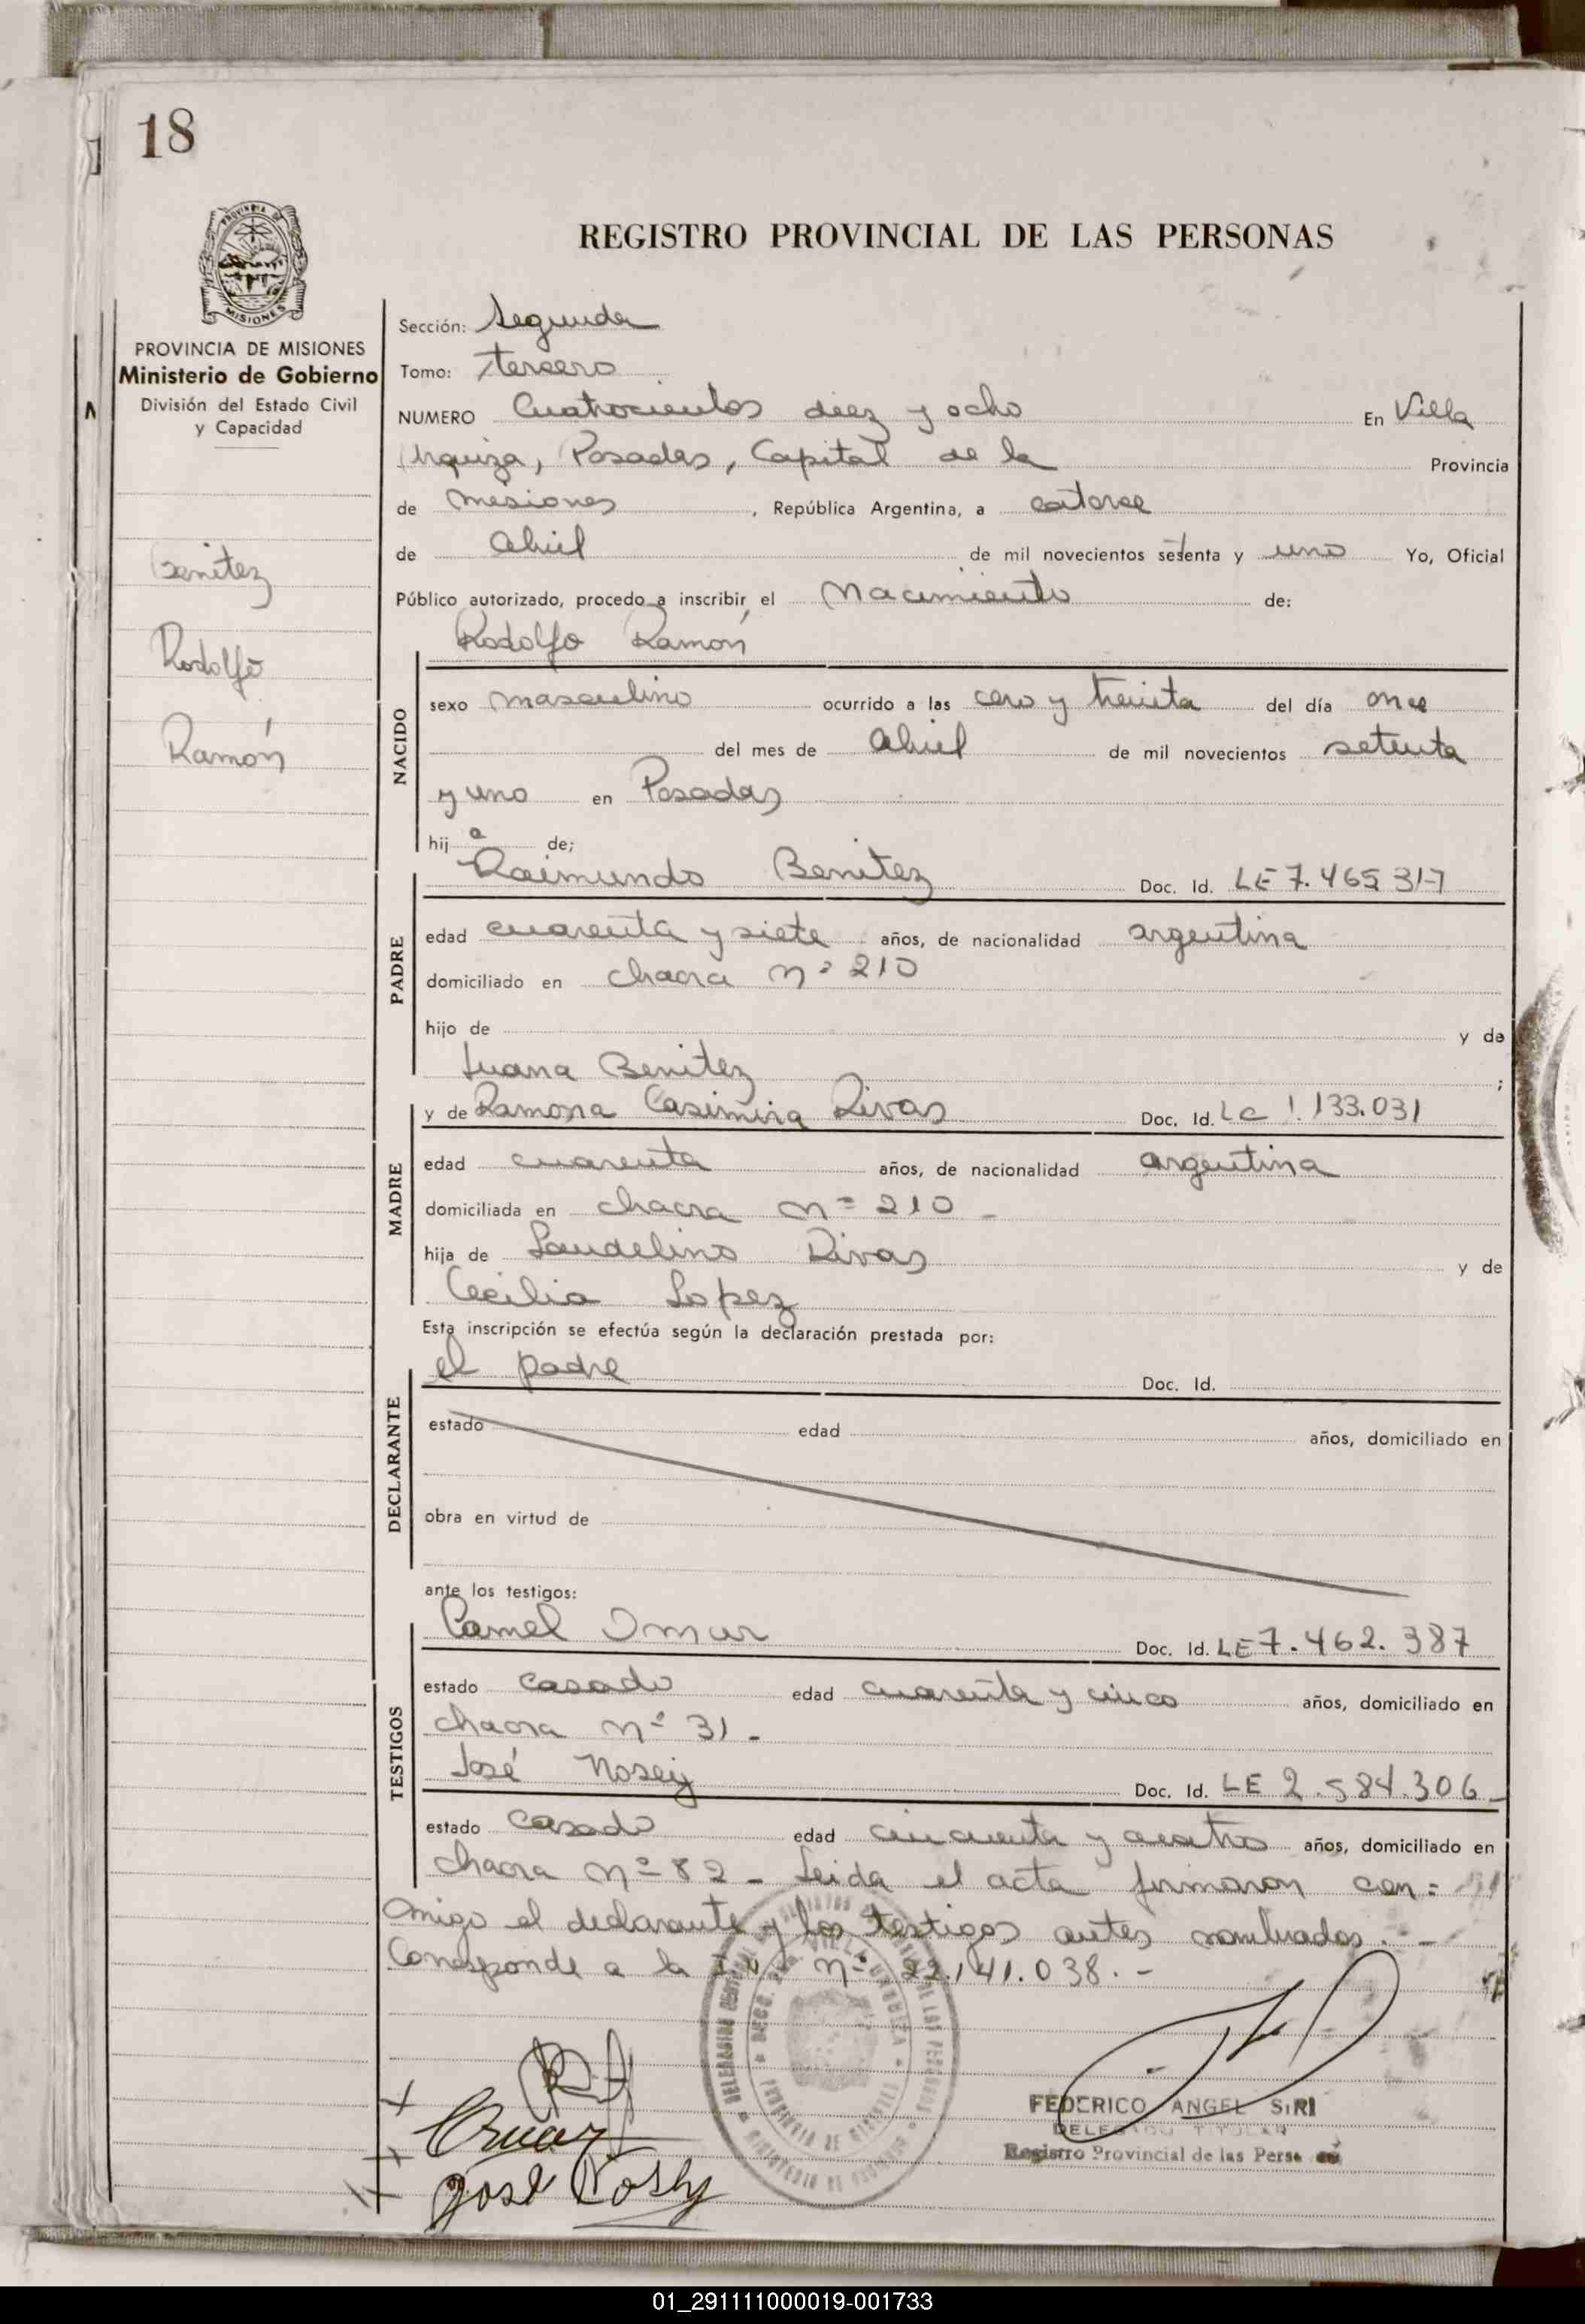 18
PROVINCIA DE MISIONES
Ministerio de Gobierno
División del Estado Civil
y Capacidad
Benitez
Rodolfo
Ramón
REGISTRO PROVINCIAL DE LAS PERSONAS
Sección: Segunda
Tomo: tercero
NUMERO Cuatrocientos diez y ocho En Villa
Urquiza, Posadas, Capital de la Provincia
de Misiones, República Argentina, a catorce
de Abril de mil novecientos setenta y uno Yo, Oficial
Público autorizado, procedo a inscribir el Nacimiento de:
Rodolfo Ramón
NACIDO
sexo masculino ocurrido a las cero y treinta del día once
del mes de Abril de mil novecientos setenta
y uno en Posadas
hijo de;
Raimundo Benitez Doc. Id. LE 7.465317
PADRE
edad cuarenta y siete años, de nacionalidad argentina
domiciliado en chacra nº 210
hijo de y de
Juana Benitez ;
y de Ramona Casimira Rivas Doc. Id. LC 1.133.031
MADRE
edad cuarenta años, de nacionalidad argentina
domiciliada en chacra nº 210 -
hija de Laudelino Rivas y de
Cecilia Lopez
Esta inscripción se efectúa según la declaración prestada por:
el padre Doc. Id.
DECLARANTE
estado edad años, domiciliado en
obra en virtud de
ante los testigos:
Camel Omar Doc. Id. LE 7.462.387
TESTIGOS
estado casado edad cuarenta y cinco años, domiciliado en
chacra nº 31 -
José Nosey Doc. Id. LE 2.584.306 -
estado casado edad cincuenta y cuatro años, domiciliado en
chacra nº 82 - Leida el acta firmaron con=
migo el declarante y los testigos antes nombrados. -
Corresponde a la nº 22.141.038. -
José Noshy
FEDERICO ANGEL SIRI
DELEGADO TITULAR
Registro Provincial de las Perso
01_291111000019-001733